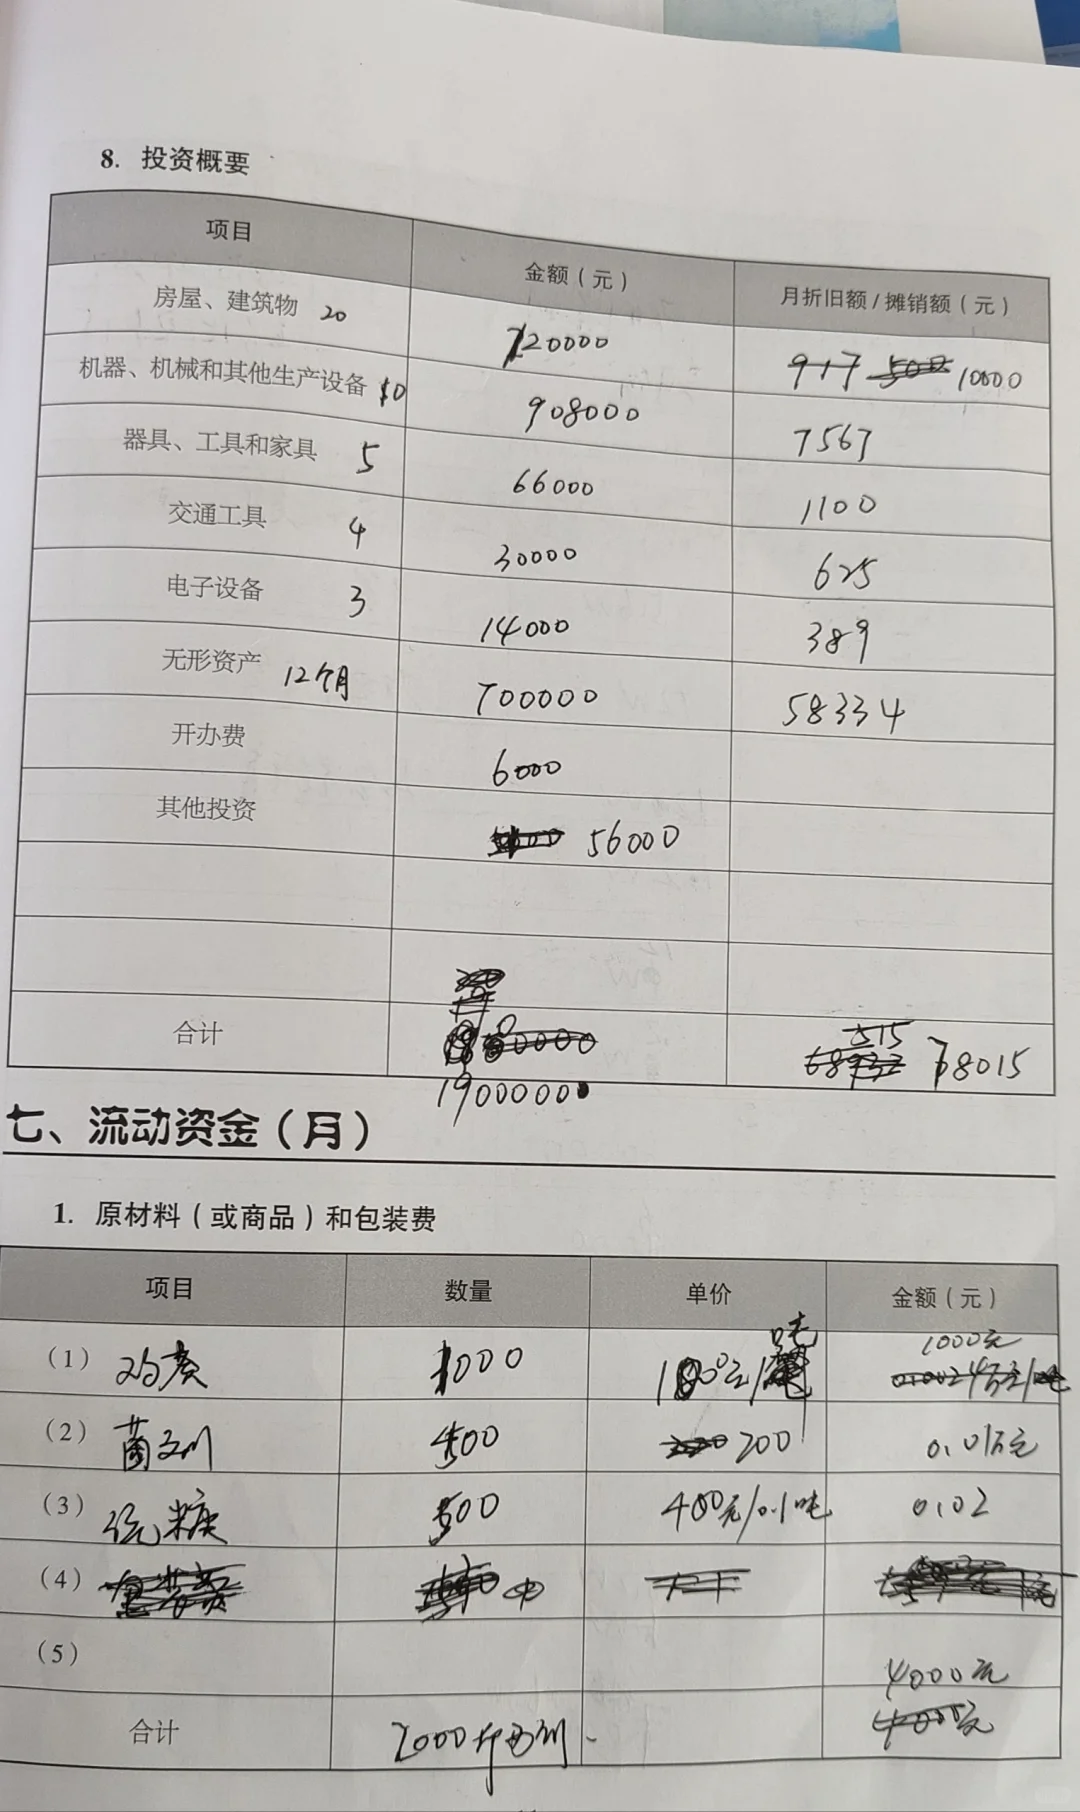 8. 投资概要
项目 金额（元） 月折旧额/摊销额（元）
房屋、建筑物 20 120000 917 10000
机器、机械和其他生产设备 10 908000 7567
器具、工具和家具 5 66000 1100
交通工具 4 30000 625
电子设备 3 14000 389
无形资产 12个月 700000 58334
开办费 6000
其他投资 56000
合计 1900000 78015
七、流动资金（月）
1. 原材料（或商品）和包装费
项目 数量 单价 金额（元）
（1）鸡粪 1000 100元/吨 1000元
（2）菌剂 500 200 0.01万元
（3）统糠 500 400元/0.1吨 0.02
（4）
（5） 4000元
合计 2000斤